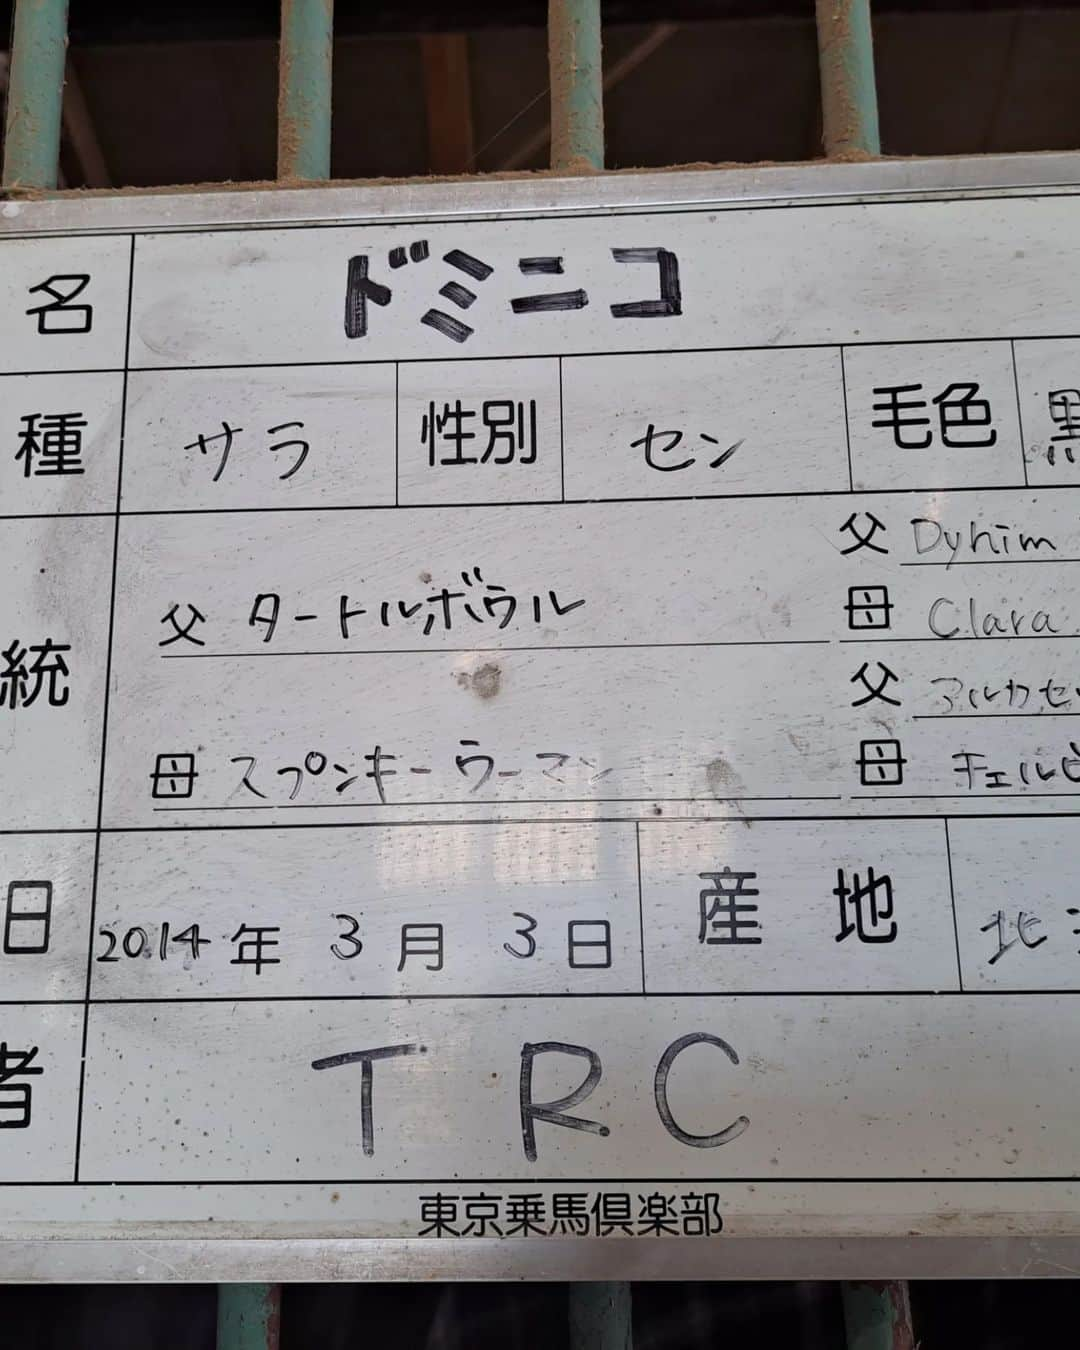 名 ドミニコ
種 サラ 性別 セン 毛色 黒
父 Dyhim
父 タートルボウル
母 Clara
統
父 アルカセ
母 スプンキーウーマン
母 チェルビ
日 2014年 3月 3日 産地 北
者 T R C
東京乗馬倶楽部